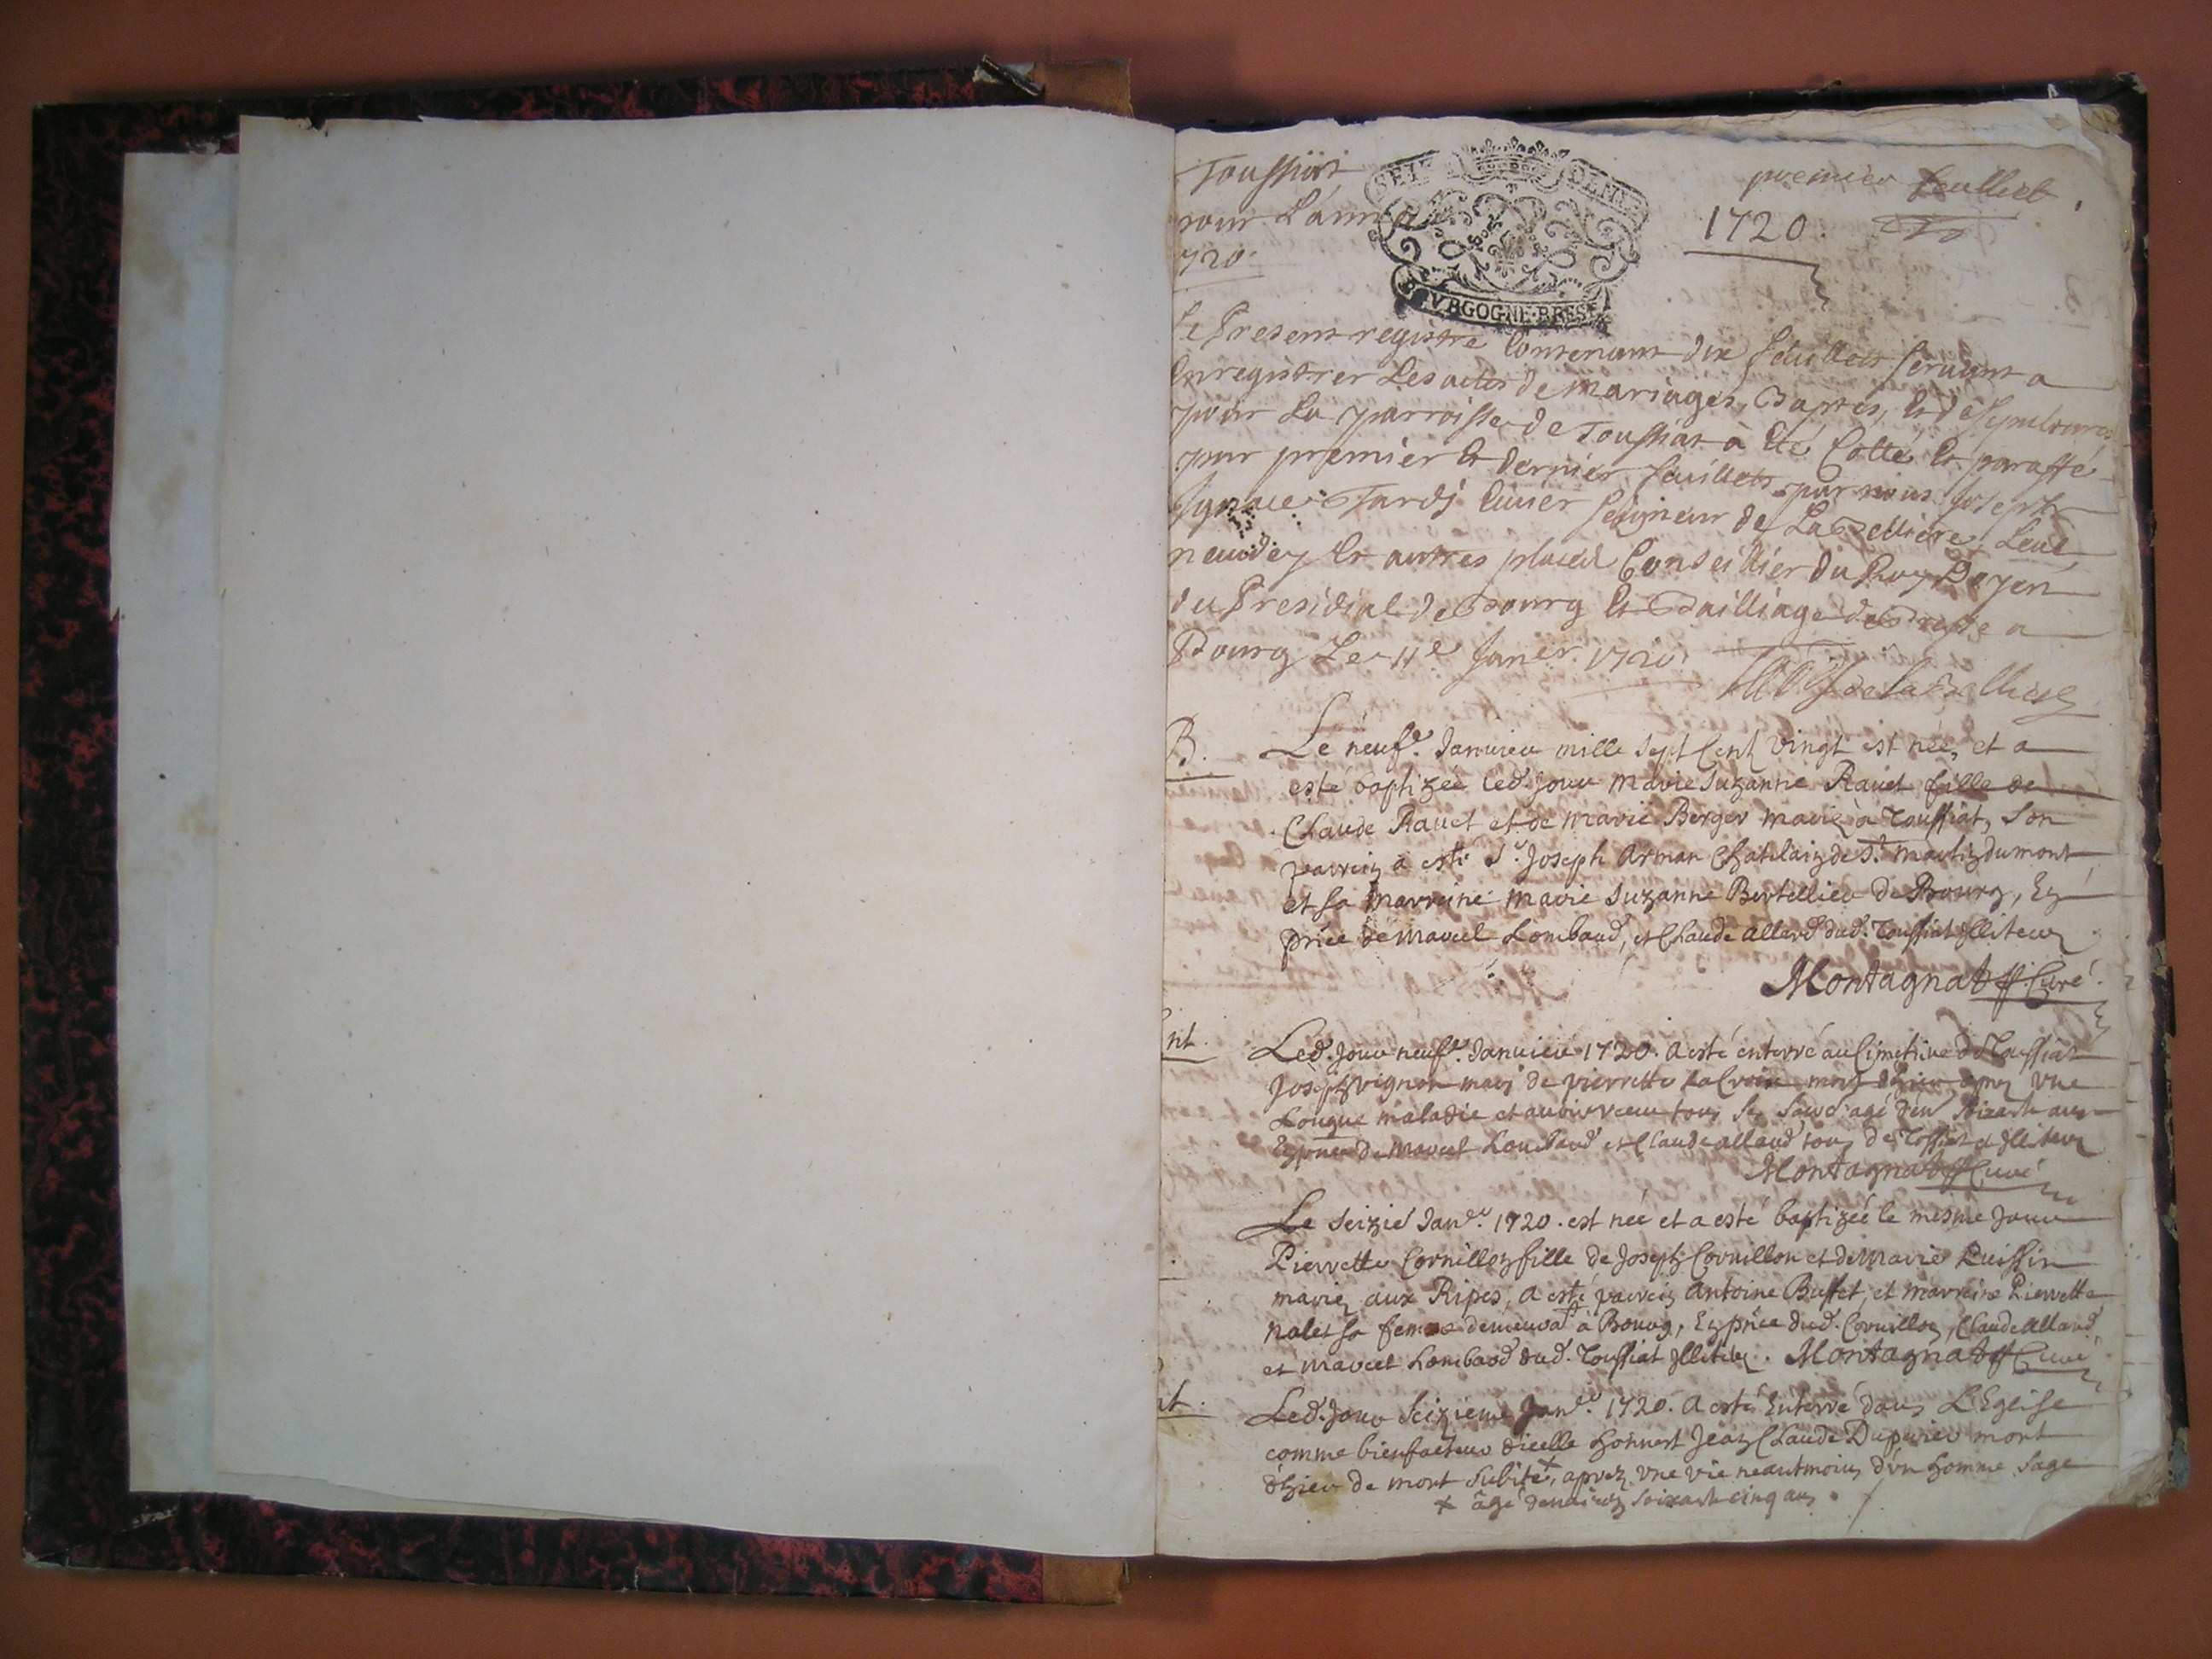 Toussiat
pour L'année
720.
SEIZE DENIE
BOVRGOGNE·BRESSE
premier feulliet
1720.
Le Present registre Contenant dix feuillets servant a
Enregistrer Les actes de Mariages, Baptes, Et de Sepultures
pour La parroisse de Toussiat à Eté Cotté Et paraffé
par premier Et dernier feuillets par nous Joseph
Ignace Tardj Ecuier Seigneur de La Belliere,
Et autres places Conseillier du Roy Doyen
du Presidial de Bourg Et Bailliage de Bresse a
Bourg Le 11e Janer. 1720.
de La Belliere
B.
Le neufe. Janvier mille sept Cent vingt est née, et a
esté baptizée led. jour Marie Suzanne Ravet fille de
Claude Ravet et de Marie Berger mariez à Toussiat, son
parrein a esté Sr. Joseph Arman Chatelain de St. Martin dumont
et sa Marreine Marie Suzanne Bertellier de Bourg, En
pnce de Marcel Lombard, et Claude Allard dud. Toussiat Illiterez
Montagnat Curé.
nt.
Led. Jour neufe. Janvier 1720. a esté enterré au Cimetiere de Toussiat
Joseph vignon mary de pierrette La Croix mort d'hier apres vne
Longue maladie et avoir receu tous ses sacr. agé d'en soixante ans
En pnce de Marcel Lombard et Claude allard tous de Tossiat Illiterez
Montagnat Curé
Le seizie Janer. 1720. est née et a esté baptizée le mesme Jour
Pierrette Cornillon fille de Joseph Cornillon et de Marie Puissin
mariez aux Ripes, a esté parrein Antoine Buffet, et marreine Pierrette
Nalet sa femme demeurat à Bourg, En pnce dud. Cornillon, Claude Allard
et Marcel Lombard dud. Toussiat Illiterez. Montagnat Curé
nt.
Led. Jour seizieme Janer. 1720. a esté Enterré dans L'Eglise
comme bienfaiteur d'icelle honnest Jean Claude Dupuier mort
d'hier de mort subite +, aprez vne vie neantmoins d'vn homme sage
+ âgé denviron soixante cinq ans.